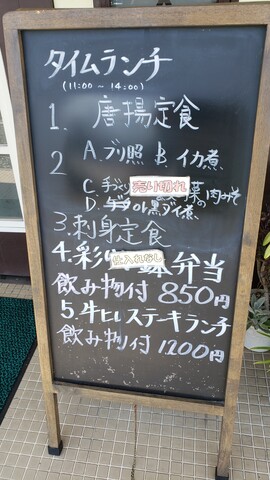 タイムランチ
(11:00～14:00)
1. 唐揚定食
2 A.ブリ照 B.イカ煮
C.手づくり 売り切れ 菜の肉巻
D. 黒ダイ煮
3.刺身定食
4.彩り 仕入れなし 弁当
飲み物付 850円
5.牛ヒレステーキランチ
飲み物付 1200円